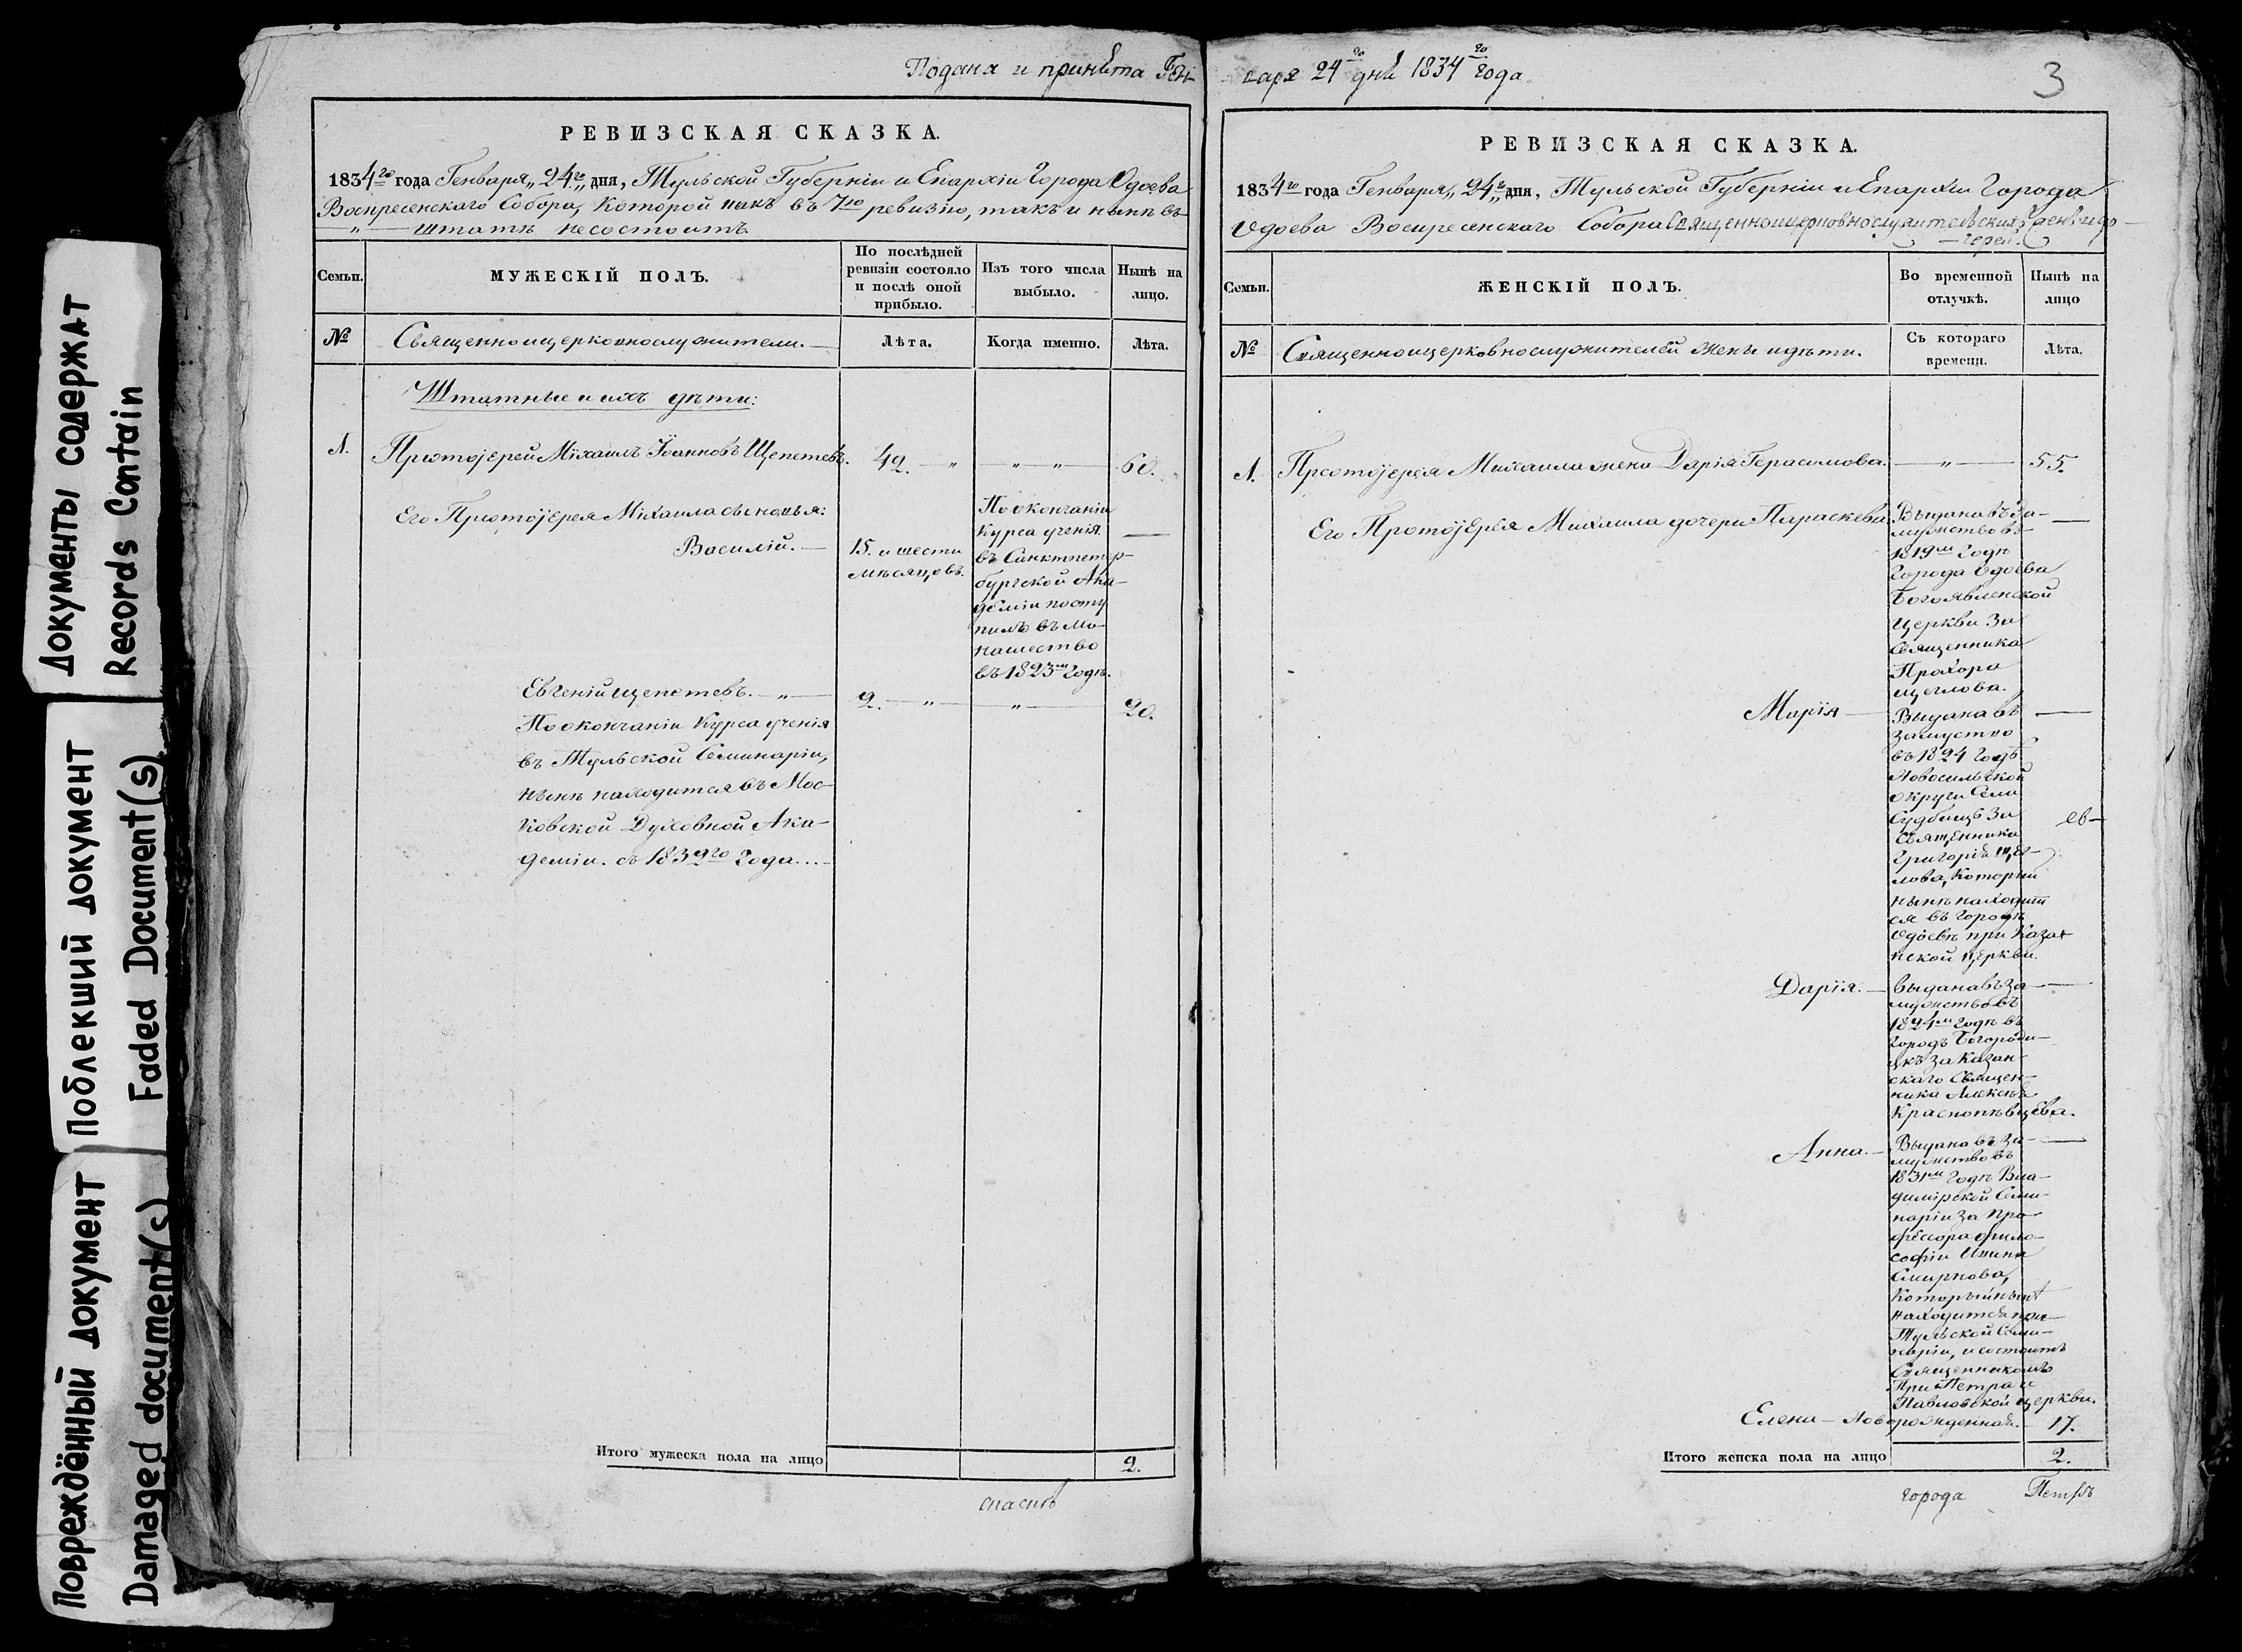 Документы содержат
Records Contain
Поблекший документ
Faded Document(s)
Повреждённый документ
Damaged document(s)
Подана и принѣта Ген
варя 24го дня 1834го года
3
РЕВИЗСКАЯ СКАЗКА.
1834го года Генваря „24го„ дня, Тульской Губерніи и Епархіи Города Одоева
Воскресенскаго Собора, которой какъ въ 7ю ревизію, такъ и нынѣ въ
„ — штатѣ несостоитъ
Семьи.
МУЖЕСКІЙ ПОЛЪ.
По послѣдней
ревизіи состояло
и послѣ оной
прибыло.
Изъ того числа
выбыло.
Нынѣ на
лицо.
№
Священноицерковнослужители. —
Лѣта.
Когда именно.
Лѣта.
Штатные и ихъ дѣти:
1.
Протоіерей Міхаилъ Іоанновъ Щепетевъ.
42. — „
— „ — „ —
60.
Его Протоіерея Міхаила сыновья:
Василій. —
15. и шести
мѣсяцовъ.
По окончаніи
курса ученія
въ Санктпетер-
бургской Ака-
деміи посту
пилъ въ мо-
нашество
въ 1823мъ годѣ.
—
Евгеній щепетевъ. — „ —
2. — „ —
— „ —
20.
По окончаніи курса ученія
въ Тульской Семинаріи,
нынѣ находится въ Мос-
ковской Духовной Ака-
деміи. съ 1832го года...
Итого мужеска пола на лицо
2.
спаскій
РЕВИЗСКАЯ СКАЗКА.
1834го года Генваря „24го„ дня, Тульской Губерніи и Епархіи Города
Одоева Воскресенскаго Собора Священноицерковнослужительскихъ женъ и до-
— черей.
Семьи.
ЖЕНСКІЙ ПОЛЪ.
Во временной
отлучкѣ.
Нынѣ на
лицо
№
Священноицерковнослужителей жены идѣти.
Съ котораго
времени.
Лѣта.
1.
Протоіерея Михаила жена Дарія Герасимова.
— „ —
55.
Его Протоіерея Михаила дочери Параскева.
Выдана въ за-
мужство въ
1819мъ годѣ
Города Одоева
Богоявленской
церкви за
Священника
Прохора
щеглова.
—
Марія —
Выдана въ
замуство
въ 1824 годѣ
Новосильской
округи Села
Судбищъ за
Священника
Григорія Щег-
лова, который
нынѣ находит
ся въ городѣ
Одоевѣ при Казан
нской церкви.
—
Дарія. —
выдана въ за-
мужство въ
1824мъ годѣ въ
городъ Богороди-
цкъ за Казан-
скаго Священ-
ника Алексѣя
Краснопѣвцева.
—
Анна. —
Выдана въ за-
мужство въ
1831мъ годѣ Вла-
димірской Семи-
наріи за про-
фессора фило-
софіи
Смирнова,
который нынѣ
находится при
Тульской Семи-
наріи, и состоитъ
Священникомъ
При Петра и
Павловской церкви.
—
Елена — Новорожденная. —
17.
Итого женска пола на лицо
2.
города
Петръ